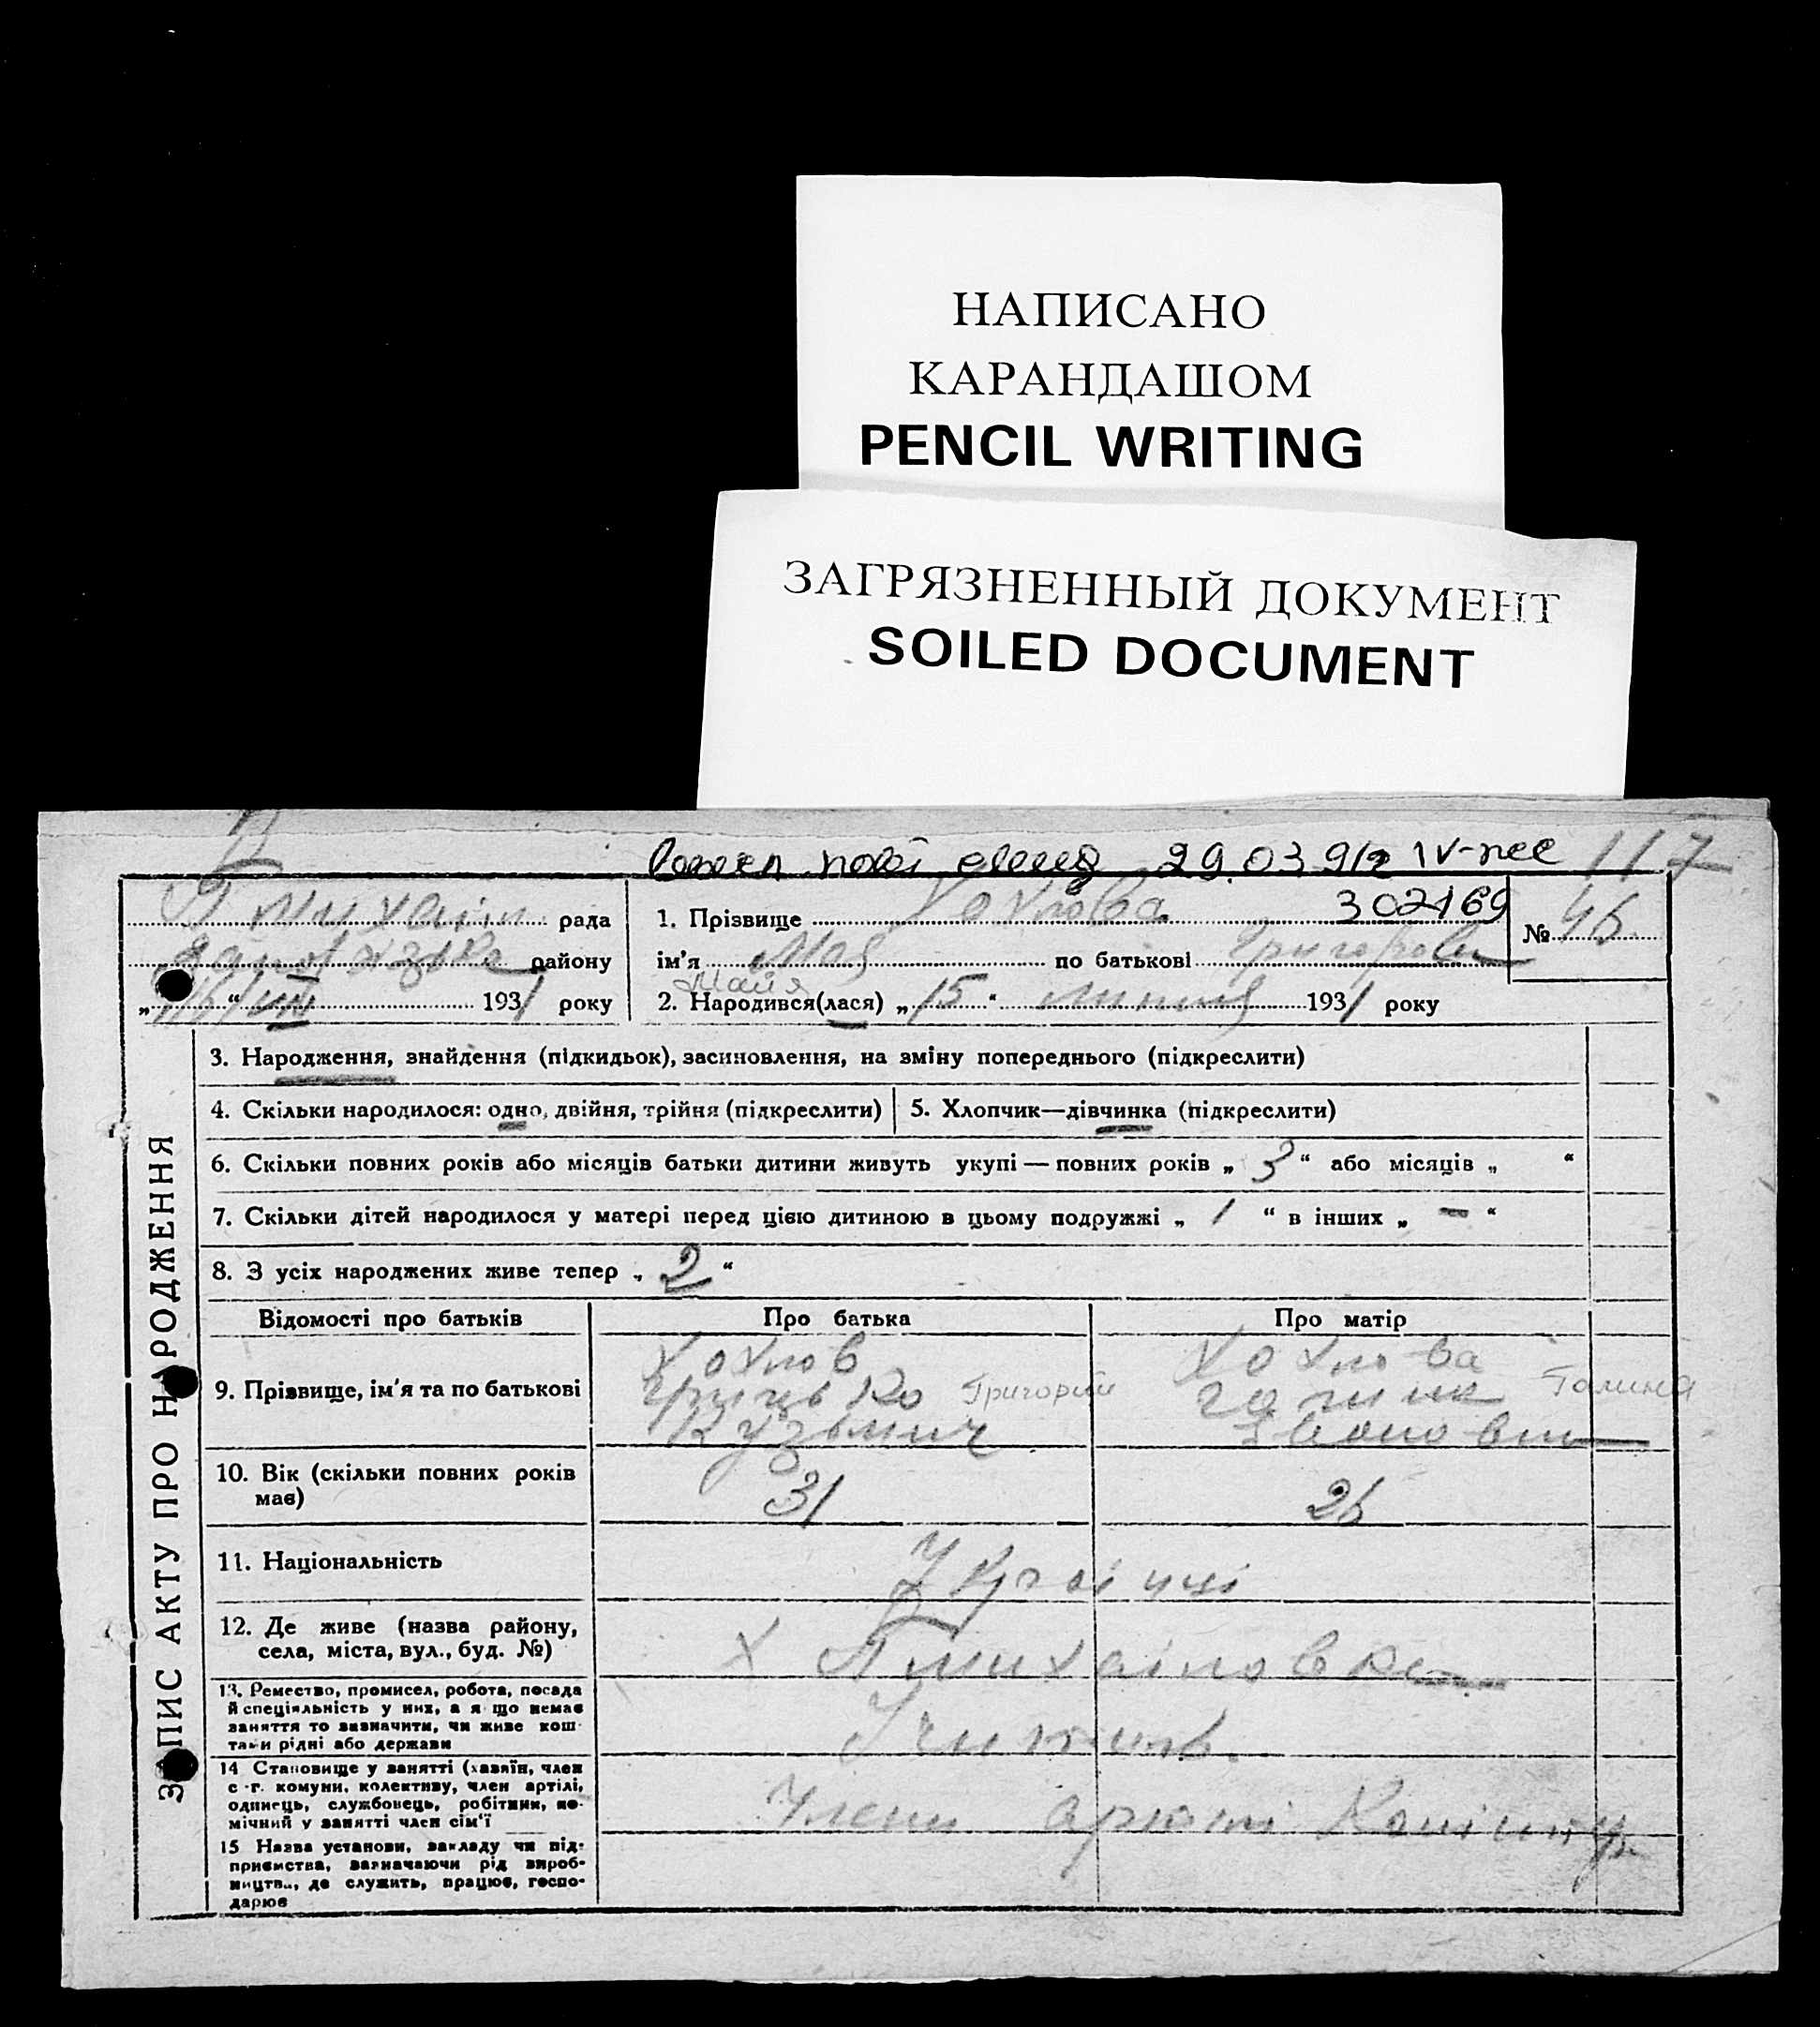 НАПИСАНО
КАРАНДАШОМ
PENCIL WRITING
ЗАГРЯЗНЕННЫЙ ДОКУМЕНТ
SOILED DOCUMENT
29.03 IV-
117
рада
1. Прізвище Хохлова
302169
№ 46
району
ім'я Мая по батькові
Майя
„16“ VII 1931 року
2. Народився(лася) „15“ липня 1931 року
ЗАПИС АКТУ ПРО НАРОДЖЕННЯ
3. Народження, знайдення (підкидьок), засиновлення, на зміну попереднього (підкреслити)
4. Скільки народилося: одно, двійня, трійня (підкреслити)
5. Хлопчик—дівчинка (підкреслити)
6. Скільки повних років або місяців батьки дитини живуть укупі — повних років „ 3 “ або місяців „ “
7. Скільки дітей народилося у матері перед цією дитиною в цьому подружжі „ 1 “ в інших „ — “
8. З усіх народжених живе тепер „ 2 “
Відомості про батьків
Про батька
Про матір
9. Прізвище, ім'я та по батькові
Хохлов
Грицько Григорій
Кузьмич
Хохлова
Галина
10. Вік (скільки повних років
має)
31
26
11. Національність
Українці
12. Де живе (назва району,
села, міста, вул., буд. №)
Х
13. Ремество, промисел, робота, посада
й спеціяльність у них, а я що немає
заняття то зазначити, чи живе кош-
тами рідні або держави
14 Становище у занятті (хазяїн, член
с.-г. комуни, колективу, член артілі,
одинець, службовець, робітник, по-
мічний у занятті член сім'ї
Члени
15 Назва установи, закладу чи під-
приємства, зазначаючи рід вироб-
ництва, де служить, працює, госпо-
дарює